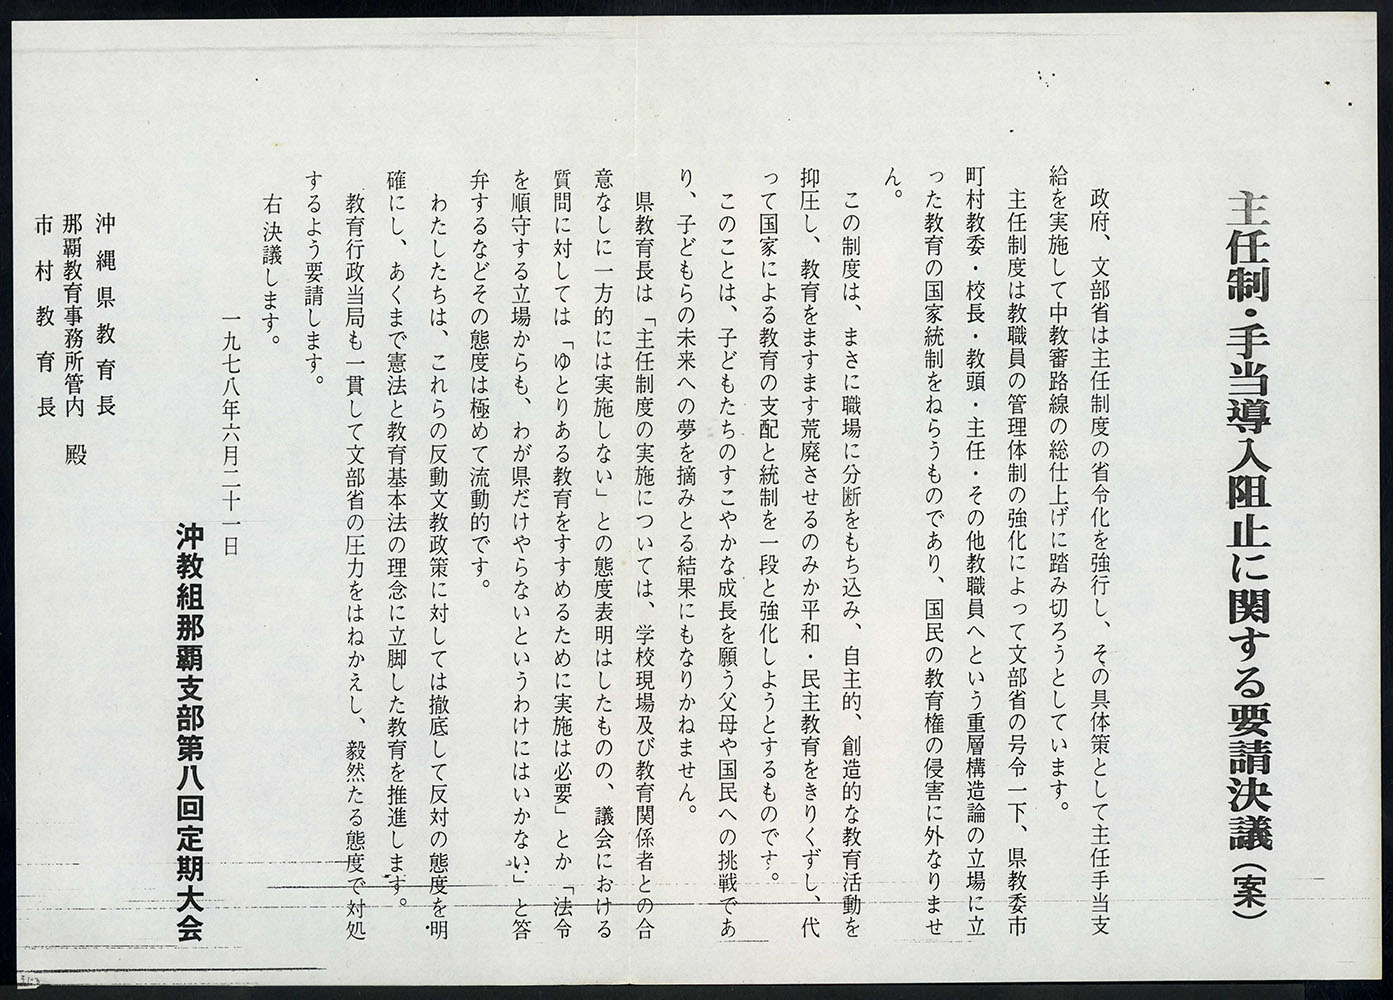 主任制・手当導入阻止に関する要請決議(案)
政府、文部省は主任制度の省令化を強行し、その具体策として主任手当支
給を実施して中教審路線の総仕上げに踏み切ろうとしています。
主任制度は教職員の管理体制の強化によって文部省の号令一下、県教委市
町村教委・校長・教頭・主任・その他教職員へという重層構造論の立場に立
った教育の国家統制をねらうものであり、国民の教育権の侵害に外なりませ
ん。
この制度は、まさに職場に分断をもち込み、自主的、創造的な教育活動を
抑圧し、教育をますます荒廃させるのみか平和・民主教育をきりくずし、代
って国家による教育の支配と統制を一段と強化しようとするものです。
このことは、子どもたちのすこやかな成長を願う父母や国民への挑戦であ
り、子どもらの未来への夢を摘みとる結果にもなりかねません。
県教育長は「主任制度の実施については、学校現場及び教育関係者との合
意なしに一方的には実施しない」との態度表明はしたものの、議会における
質問に対しては「ゆとりある教育をすすめるために実施は必要」とか「法令
を順守する立場からも、わが県だけやらないというわけにはいかない」と答
弁するなどその態度は極めて流動的です。
わたしたちは、これらの反動文教政策に対しては徹底して反対の態度を明
確にし、あくまで憲法と教育基本法の理念に立脚した教育を推進します。
教育行政当局も一貫して文部省の圧力をはねかえし、毅然たる態度で対処
するよう要請します。
右決議します。
一九七八年六月二十一日
沖教組那覇支部第八回定期大会
沖縄県教育長
那覇教育事務所管内 殿
市村教育長